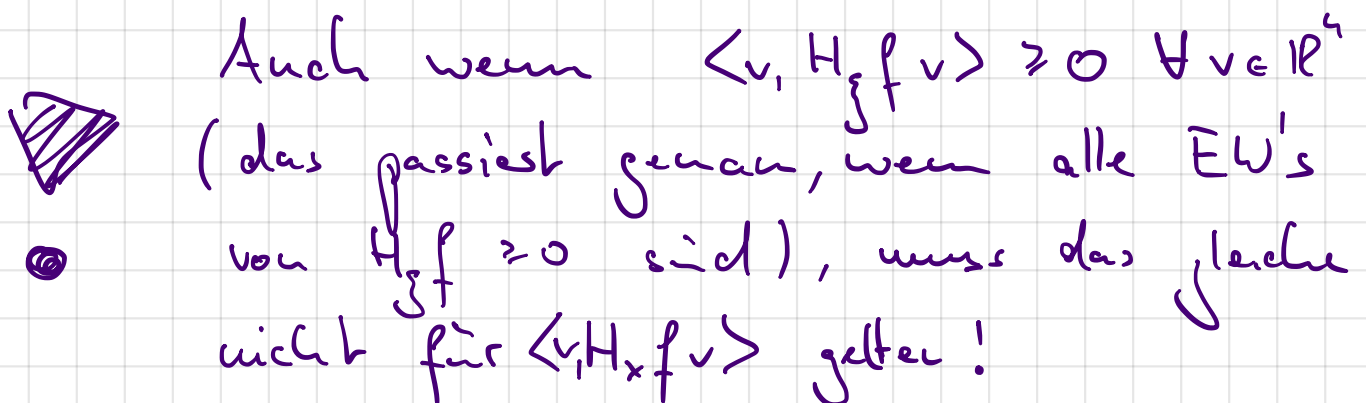 Auch wenn <v, H_ξ f v> ≥ 0 ∀ v ∈ ℝⁿ
(das passiert genau, wenn alle EW's
von H_ξ f ≥ 0 sind), muss das gleiche
nicht für <v, H_x f v> gelten!